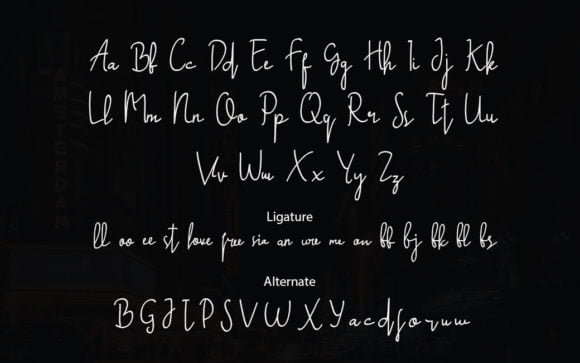 Aa Bb Cc Dd Ee Ff Gg Hh Ii Jj Kk
Ll Mm Nn Oo Pp Qq Rr Ss Tt Uu
Vv Ww Xx Yy Zz
Ligature
ll oo ee st love free sia an wre me on ff fj fk fl fs
Alternate
B G J I P S V W X Y a c d f o r u w
AMSTERDAM